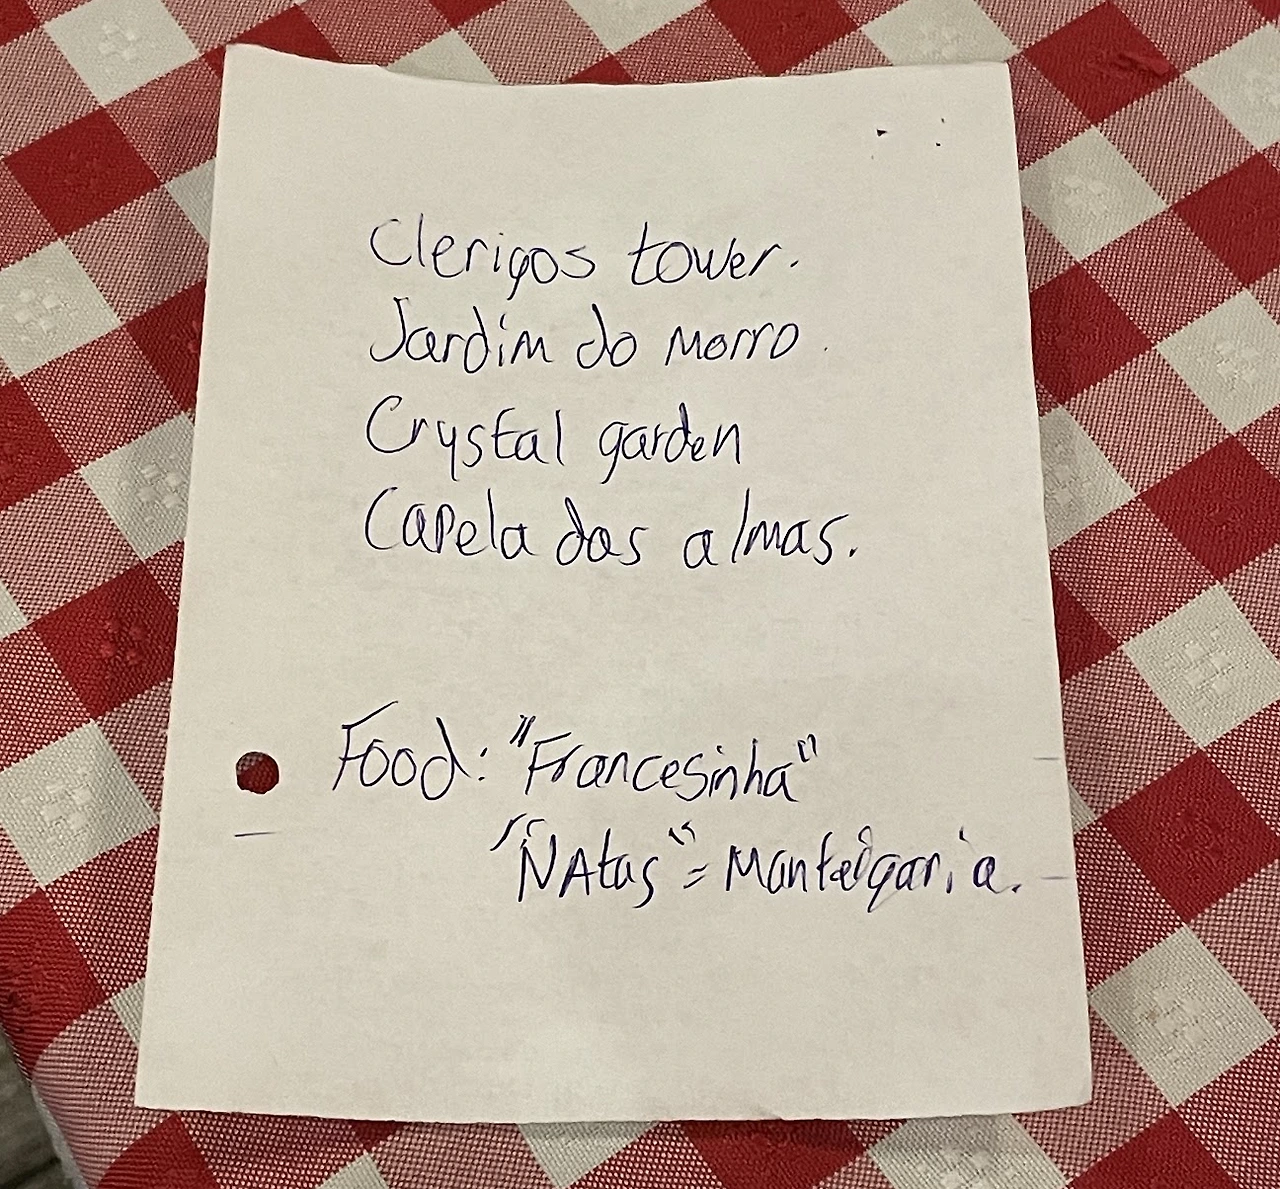 Clerigos tower.
Jardim do Morro.
Crystal garden
Capela das almas.
Food: "Francesinha"
"NAtas" = Manteigaria.